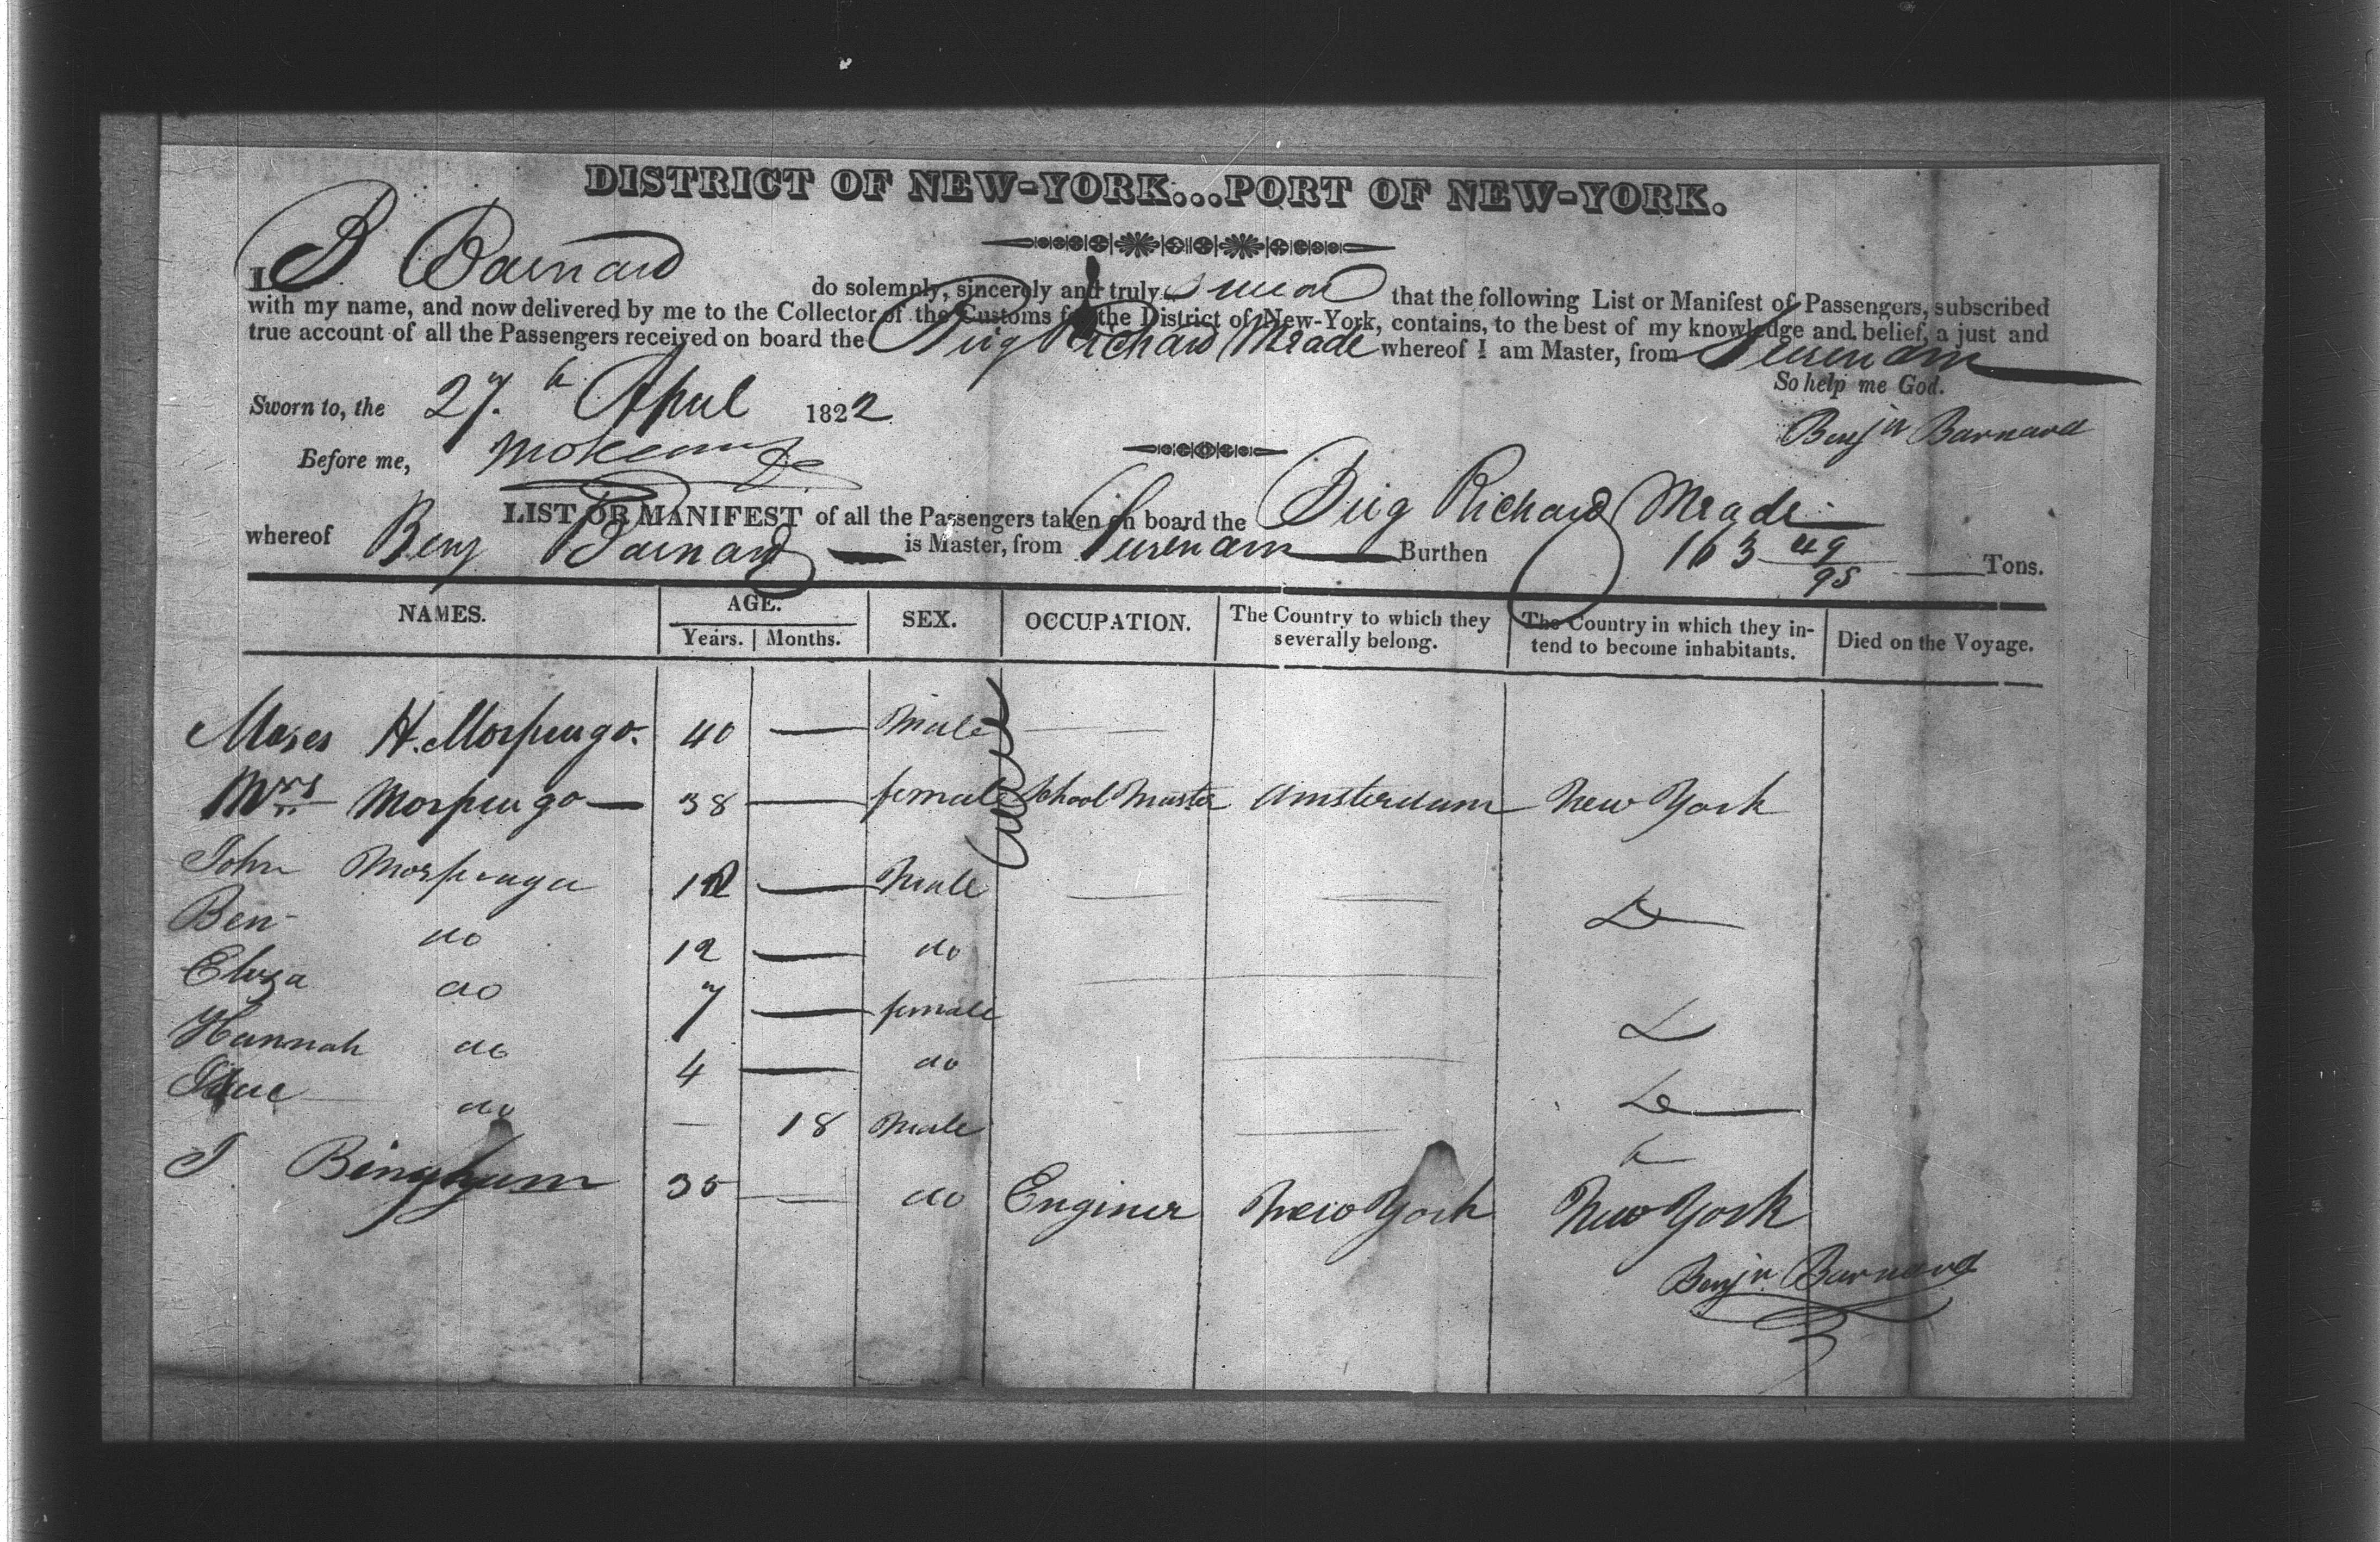 DISTRICT OF NEW-YORK...PORT OF NEW-YORK.
I B Barnard do solemnly, sincerely and truly swear that the following List or Manifest of Passengers, subscribed
with my name, and now delivered by me to the Collector of the Customs for the District of New-York, contains, to the best of my knowledge and belief, a just and
true account of all the Passengers received on board the Brig Richard Meade whereof I am Master, from Surenam
So help me God.
Sworn to, the 27th April 1822
Benjn Barnard
Before me,
LIST OR MANIFEST of all the Passengers taken on board the Brig Richard Meade
whereof Benj Barnard is Master, from Surenam Burthen 163 49/95 Tons.
NAMES. AGE. Years. Months. SEX. OCCUPATION. The Country to which they severally belong. The Country in which they intend to become inhabitants. Died on the Voyage.
Moses H. Morpurgo. 40 — Male — —
Mrs Morpurgo — 38 — female School Master Amsterdam New York
John Morpurgo 12 — Male — — Do
Ben do 12 — do —
Eliza do 7 — female Do
Hannah do 4 — do — Do
do — 18 Male —
J Bingham 35 — do Enginer New York New York
Benjn Barnard